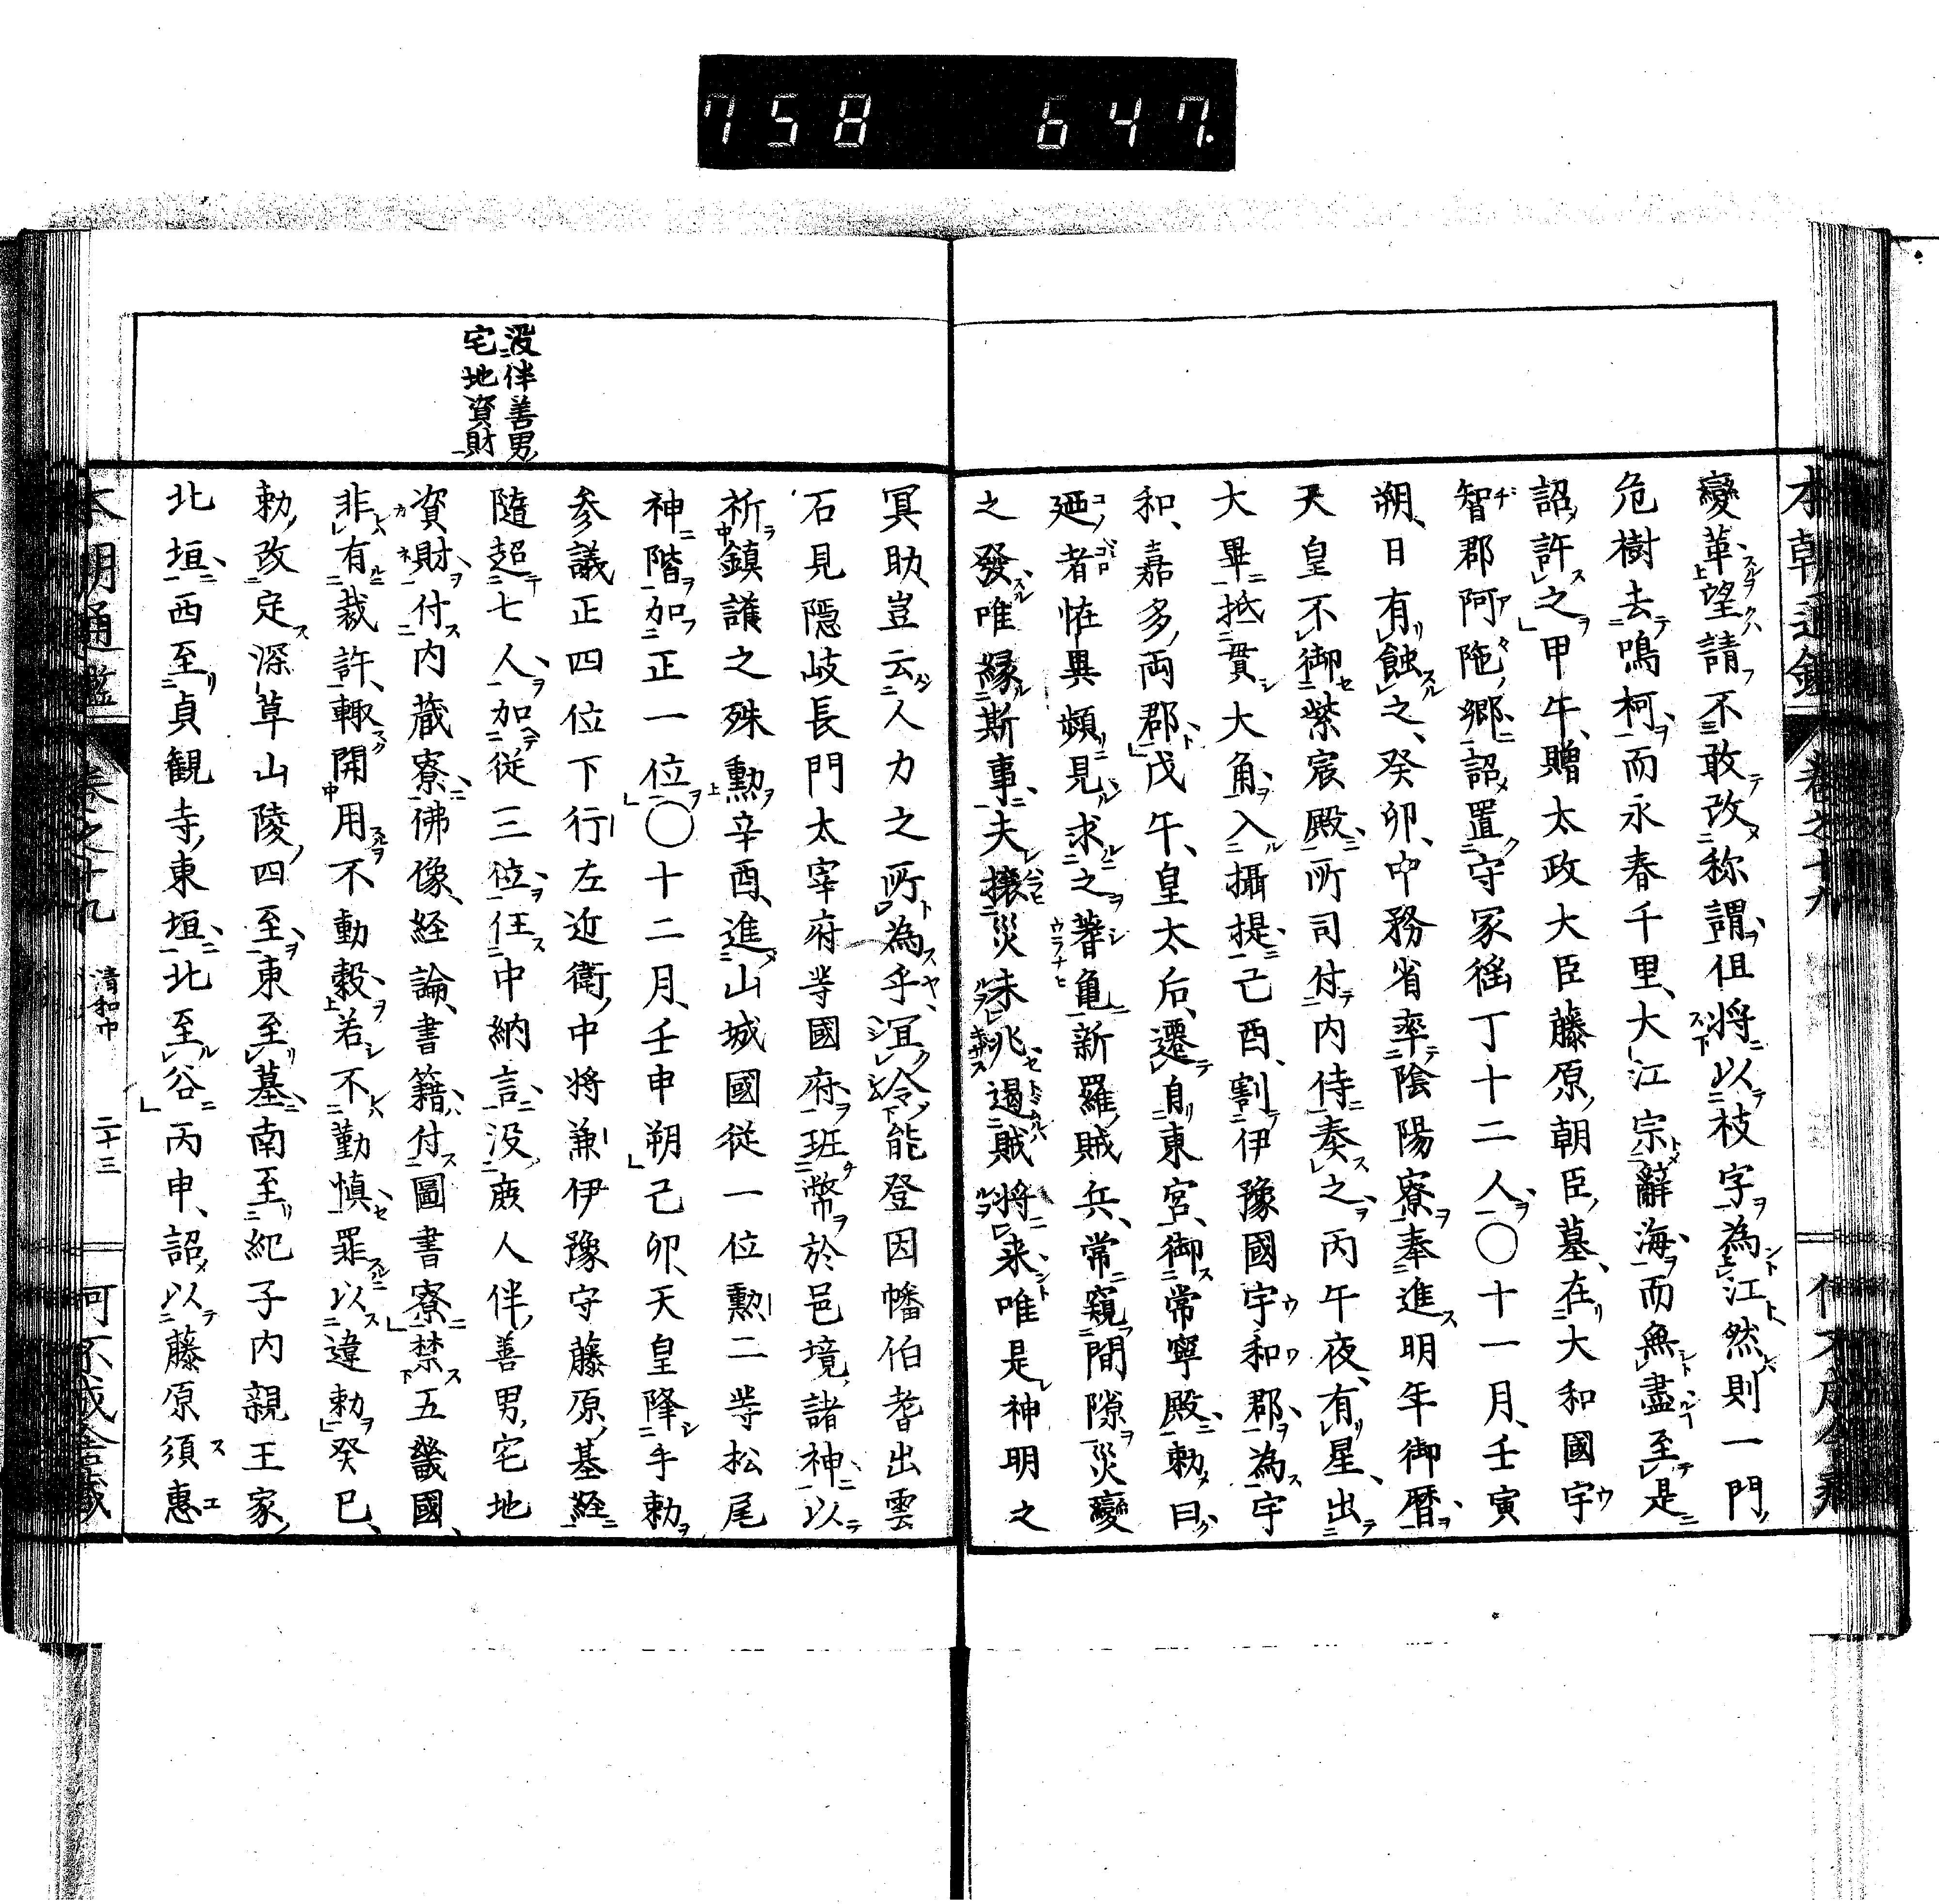 758 647
本朝通鑑 卷之十九
變革望請不敢改称謂但将以枝字為江然則一門
危樹去鳴柯而永春千里大江宗辭海而無盡至是
詔許之甲午贈太政大臣藤原朝臣墓在大和國宇
智郡阿陁郷詔置守冢徭丁十二人〇十一月壬寅
朔日有蝕之癸卯中務省率陰陽寮奉進明年御暦
天皇不御紫宸殿所司付内侍奏之丙午夜有星出
大畢抵貫大角入攝提己酉割伊豫國宇和郡為宇
和嘉多両郡戊午皇太后遷自東宮御常寧殿勅曰
廼者恠異頻見求之蓍亀新羅賊兵常窺間隙災變
之發唯縁斯事夫攘災未兆遏賊将来唯是神明之
没伴善男
宅地資財
冥助豈云人力之所為乎冝令能登因幡伯耆出雲
石見隠岐長門太宰府等國府班幣於邑境諸神以
祈鎮護之殊勲辛酉進山城國従一位勲二等松尾
神階加正一位〇十二月壬申朔己卯天皇降手勅
参議正四位下行左近衛中将兼伊豫守藤原基経
隨超七人加従三位任中納言没庻人伴善男宅地
資財付内蔵寮佛像経論書籍付圖書寮禁五畿國
非有裁許輙開用不動穀若不勤慎罪以違勅癸巳
勅改定深草山陵四至東至墓南至紀子内親王家
北垣西至貞観寺東垣北至谷丙申詔以藤原須恵
本朝通鑑 卷之十九 清和中 二十三